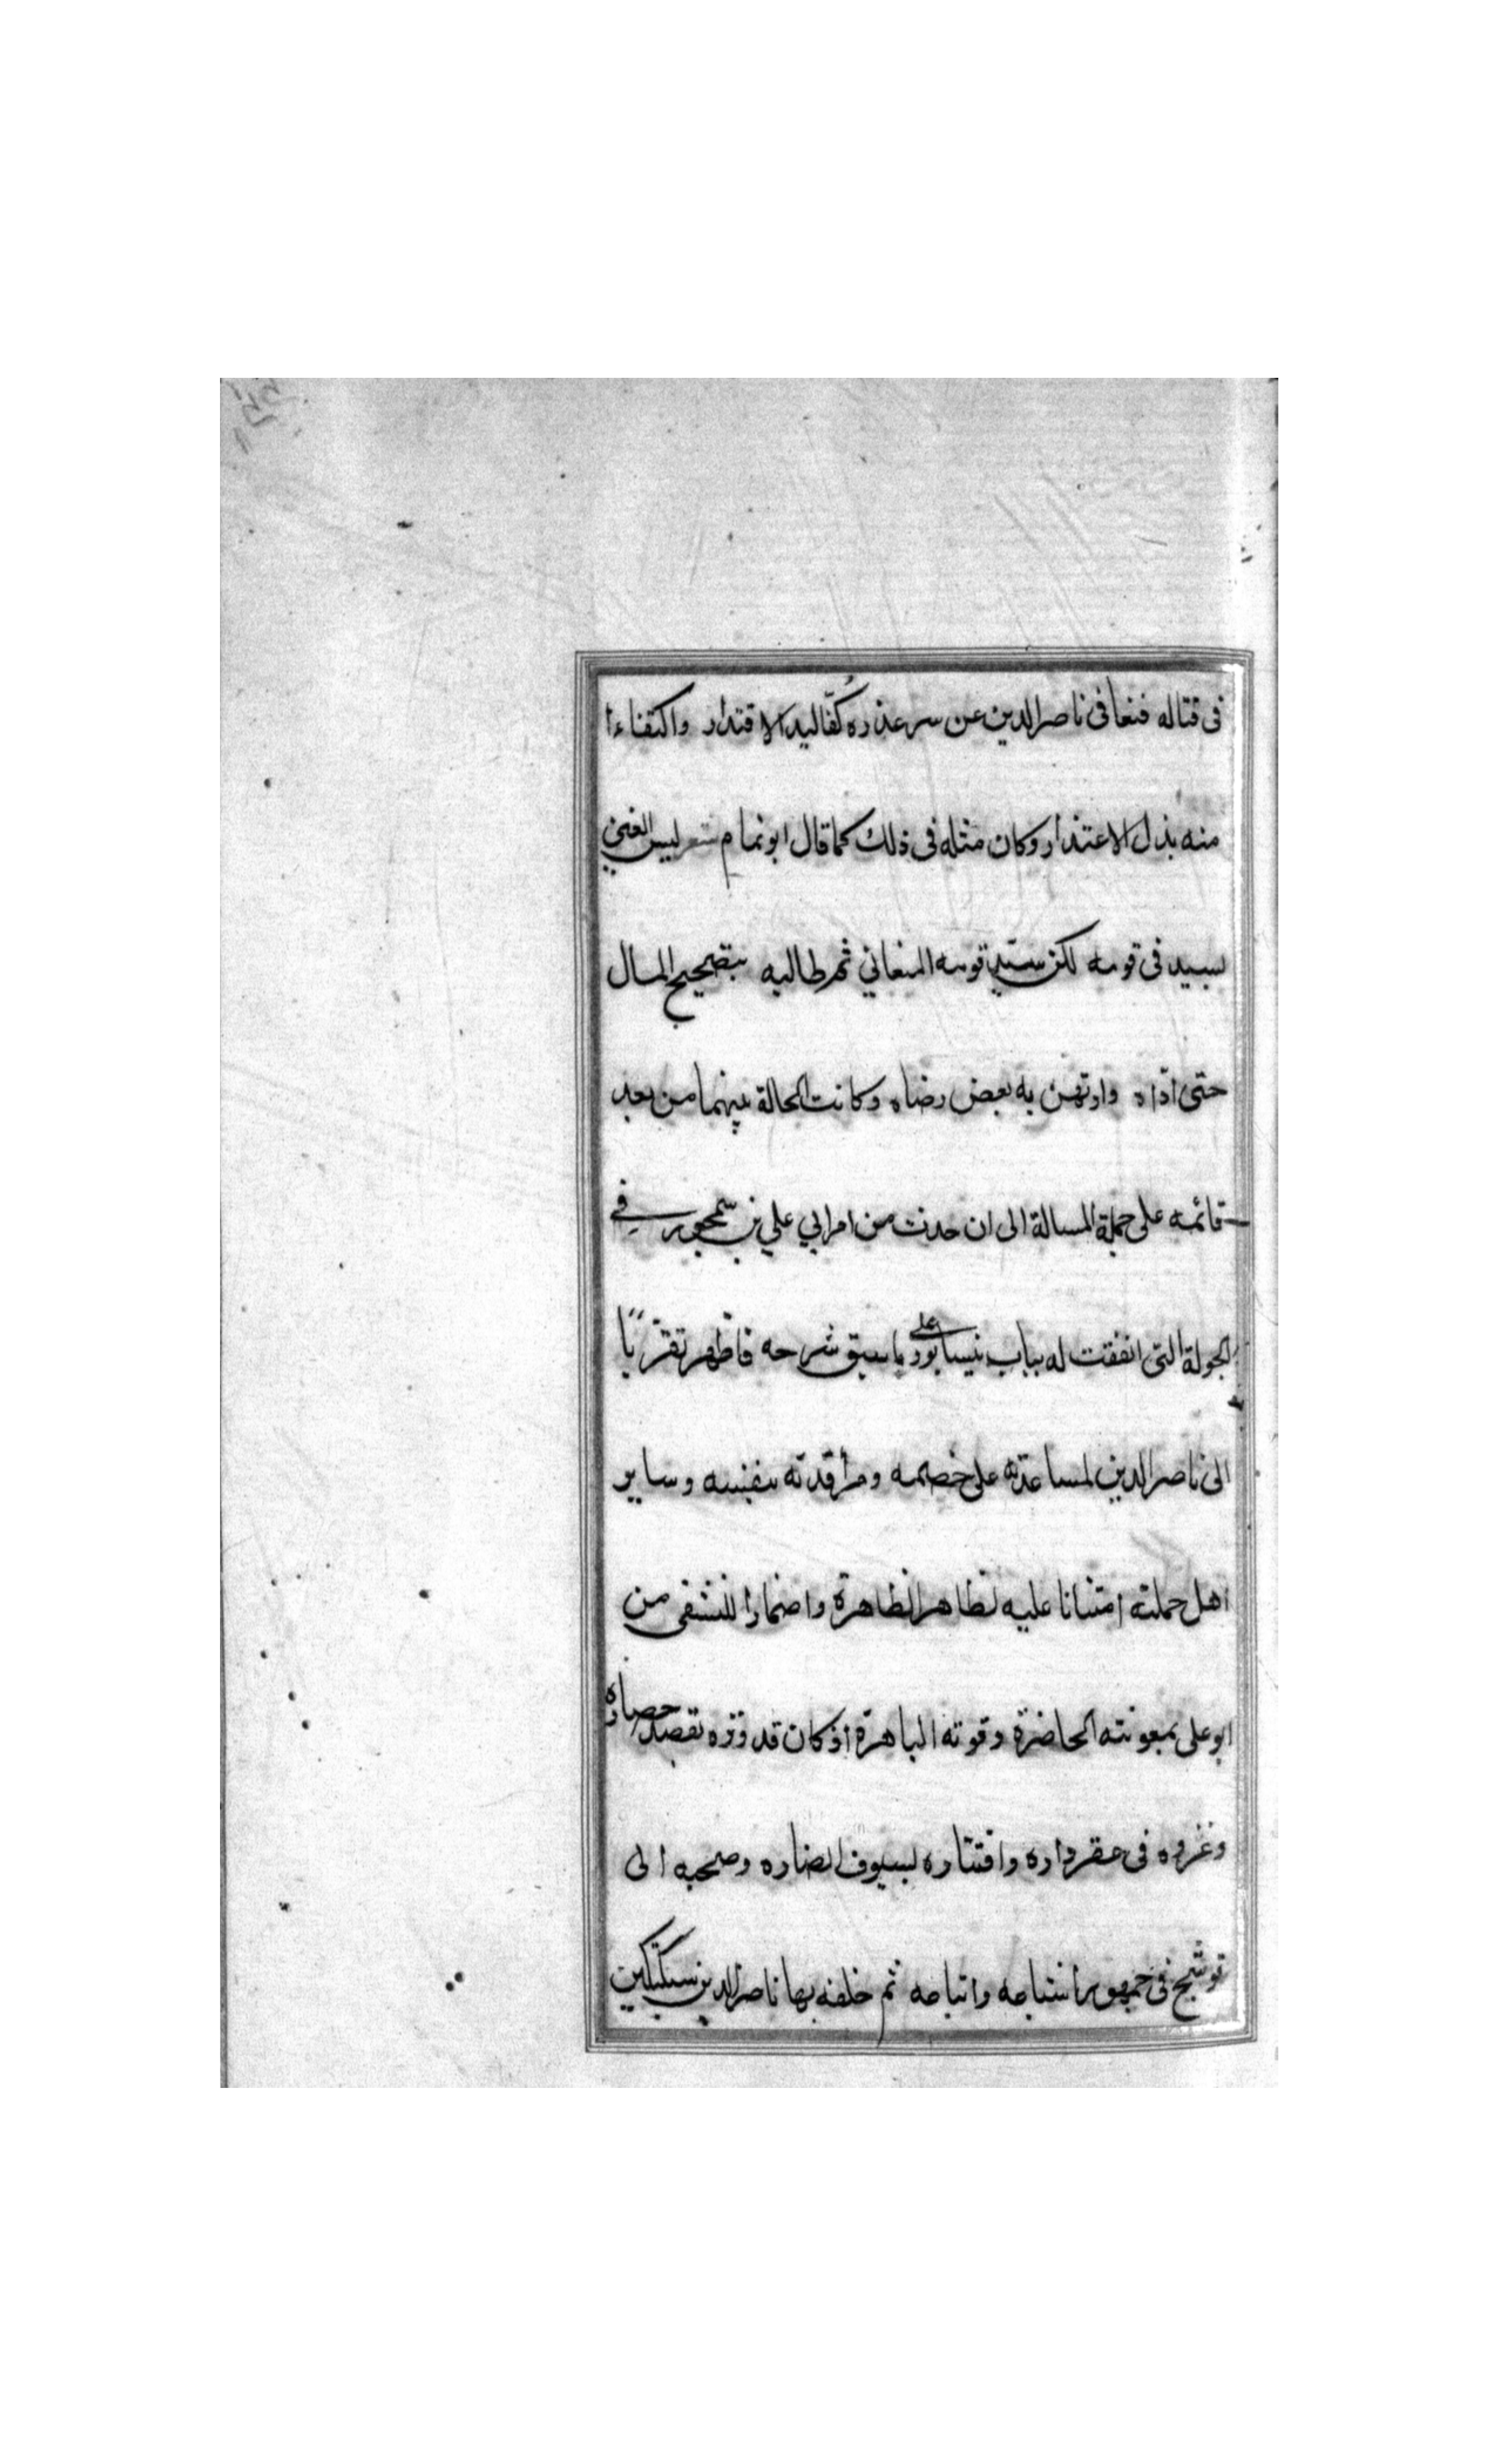 فى قتاله فتغافى ناصرالدين عن سر عذره كفا ليد الاقتدار واكتفاءا
منه بذل الاعتذار وكان مثله فى ذلك كما قال ابو تمام شعر ليس الغبي
بسيد فى قومه لكن سيد قومه المتغابي ثم طالبه بتصحيح المال
حتى ادّاه وارتهن به بعض رضاه وكانت الحالة بينهما من بعد
قائمه على جملة المسالة الى ان حدث من امر ابي علي بن سمجور في
الجولة التى اتفقت له بباب نيسابور على ما سبق شرحه فاظهر تقرّبًا
الى ناصرالدين لمساعدته على خصمه ومرافدته بنفسه وساير
اهل حملته امتنانا عليه بظاهر المظاهرة واضمارا للتشفى من
ابو على بمعونته الحاضرة وقوته الباهرة اذ كان قد وتره بقصد حصاره
وغزوه فى عقرداره واقتساره بسيوف انصاره وصحبه الى
توشبخ فى جمهور اشياعه واتباعه ثم خلفه بها ناصرالدين سبكتكين